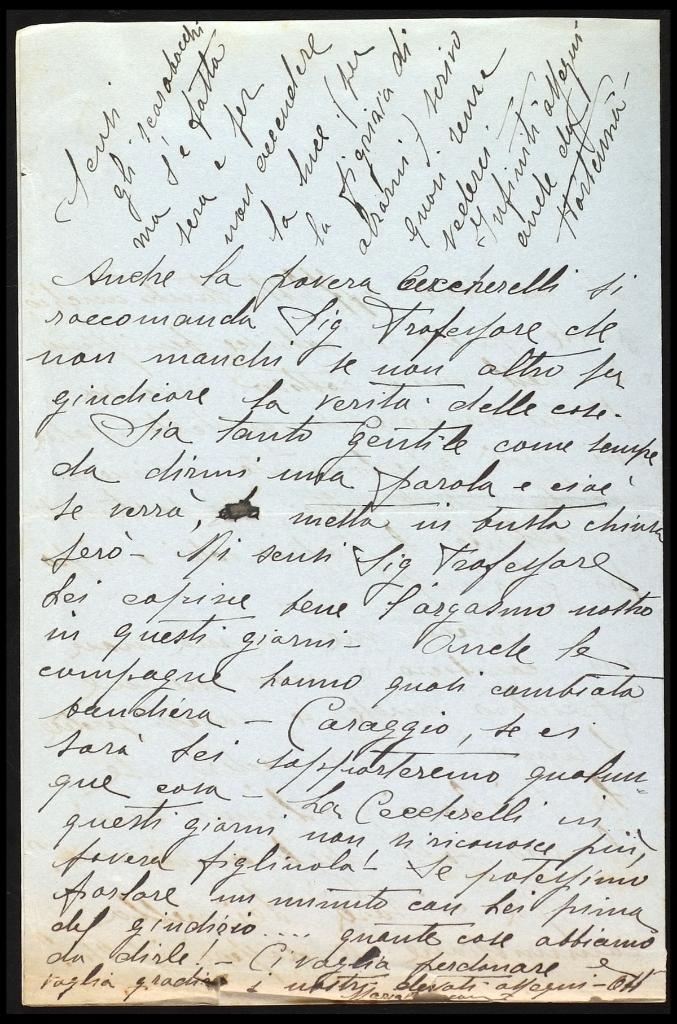 Scusi
gli scarabocchi
ma s'è fatta
sera e per
non accendere
la luce (per
la pigrizia di
alzarmi) scrivo
quasi senza
vederci.
Infiniti ossequi
anche da
Hortensia -
Anche la povera Ceccherelli si
raccomanda Sig Professore che
non manchi se non altro per
giudicare la verità delle cose.
Sia tanto gentile come sempre
da dirmi una parola e cioè
se verrà, metta in busta chiusa
però - Mi scusi Sig Professore
Lei capisce bene l'orgasmo nostro
in questi giorni - Anche le
compagne hanno quasi cambiato
bandiera - Coraggio, se ci
sarà Lei sopporteremo qualun-
que cosa - La Ceccherelli in
questi giorni non si riconosce più,
povera figliuola! Se potessimo
parlare un minuto con Lei prima
del giudizio.... quante cose abbiamo
da dirle! - Ci voglia perdonare e
voglia gradire i nostri devoti ossequi -